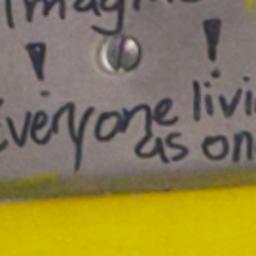 Imagin
! !
Everyone livi
as on